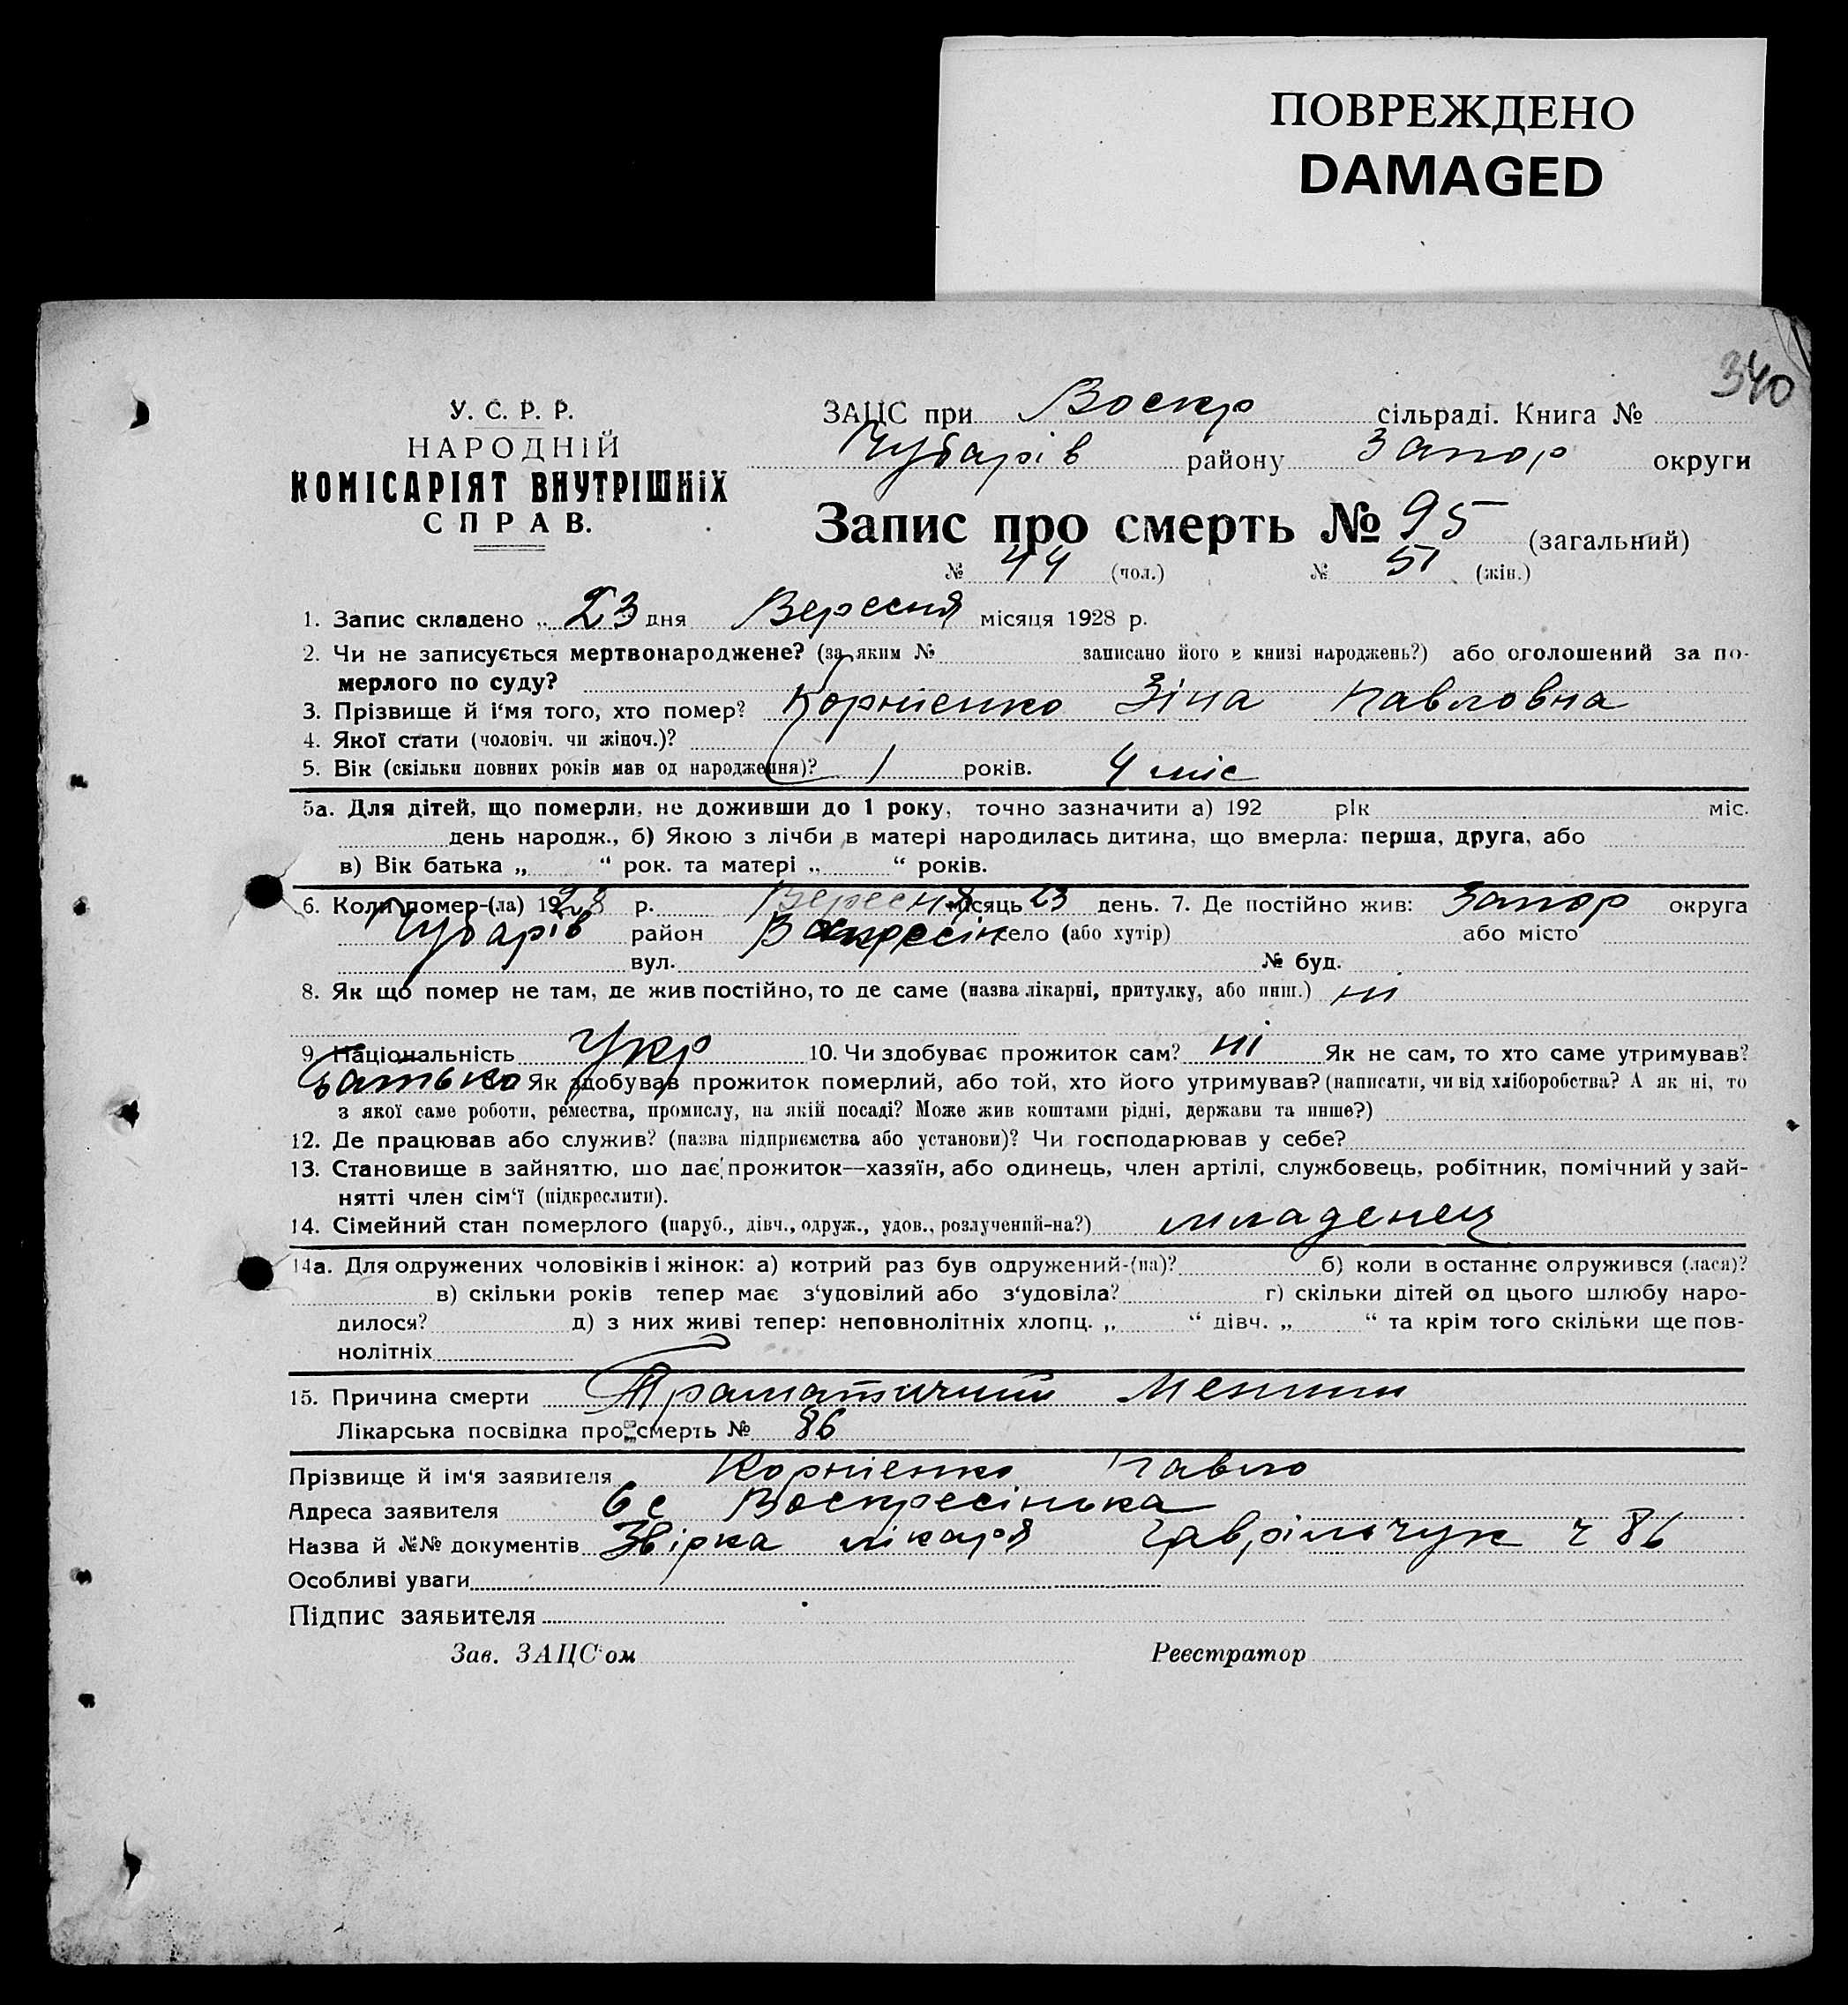 ПОВРЕЖДЕНО
DAMAGED
340
У. С. Р. Р.
НАРОДНІЙ
КОМІСАРІЯТ ВНУТРІШНІХ
СПРАВ.
ЗАЦС при Воскр сільраді. Книга №
Чубарів району Запор округи
Запис про смерть № 95 (загальний)
№ 44 (чол.) № 51 (жін.)
1. Запис складено „ 23 дня Вересня місяця 1928 р.
2. Чи не записується мертвонароджене? (за яким № записано його в книзі народжень?) або оголошений за по-
мерлого по суду?
3. Прізвище й і‘мя того, хто помер? Корнієнко Зіна Павловна
4. Якої стати (чоловіч. чи жіноч.)?
5. Вік (скільки повних років мав од народження)? 1 років. 4 міс
5а. Для дітей, що померли, не доживши до 1 року, точно зазначити а) 192 рік міс.
день народж., б) Якою з лічби в матері народилась дитина, що вмерла: перша, друга, або
в) Вік батька „ “ рок. та матері „ “ років.
6. Коли помер-(ла) 1928 р. Вересня місяць 23 день. 7. Де постійно жив: Запор округа
Чубарів район Воскресін село (або хутір) або місто
вул. № буд.
8. Як що помер не там, де жив постійно, то де саме (назва лікарні, притулку, або инш.) ні
9. Національність Укр 10. Чи здобуває прожиток сам? ні Як не сам, то хто саме утримував?
батько Як здобував прожиток померлий, або той, хто його утримував? (написати, чи від хліборобства? А як ні, то
з якої саме роботи, ремества, промислу, на якій посаді? Може жив коштами рідні, держави та инше?)
12. Де працював або служив? (назва підприємства або установи)? Чи господарював у себе?
13. Становище в зайняттю, що дає прожиток—хазяїн, або одинець, член артілі, службовець, робітник, помічний у зай-
нятті член сім‘ї (підкреслити).
14. Сімейний стан померлого (паруб., дівч., одруж., удов., розлучений-на?) младенец
14а. Для одружених чоловіків і жінок: а) котрий раз був одружений-(на)? б) коли в останнє одружився (лася)?
в) скільки років тепер має з‘удовілий або з‘удовіла? г) скільки дітей од цього шлюбу наро-
дилося? д) з них живі тепер: неповнолітніх хлопц. „ “ дівч. „ “ та крім того скільки ще пов-
нолітніх
15. Причина смерти
Лікарська посвідка про смерть № 86
Прізвище й ім‘я заявителя Корнієнко Павло
Адреса заявителя с Воскресінька
Назва й №№ документів лікаря Гаврільчук ч 86
Особливі уваги
Підпис заявителя
Зав. ЗАЦС‘ом Реєстратор